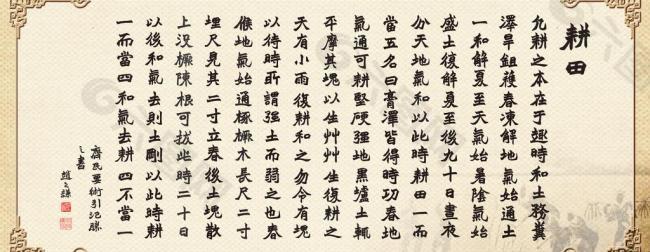 耕田
凡耕之本在于趣時和土務糞
澤旱鉏穫春凍解地氣始通土
一和解夏至天氣始暑陰氣始
盛土復解夏至後九十日晝夜
分天地氣和以此時耕田一而
當五名曰膏澤皆得時功春地
氣通可耕堅硬强地黑壚土輒
平摩其塊以生艸艸生復耕之
天有小雨復耕和之勿令有塊
以待時所謂强土而弱之也春
候地氣始通椓橛木長尺二寸
埋尺見其二寸立春後土塊散
上没橛陳根可拔此時二十日
以後和氣去則土剛以此時耕
一而當四和氣去耕四不當一
齊民要術引氾勝
之書
趙之謙